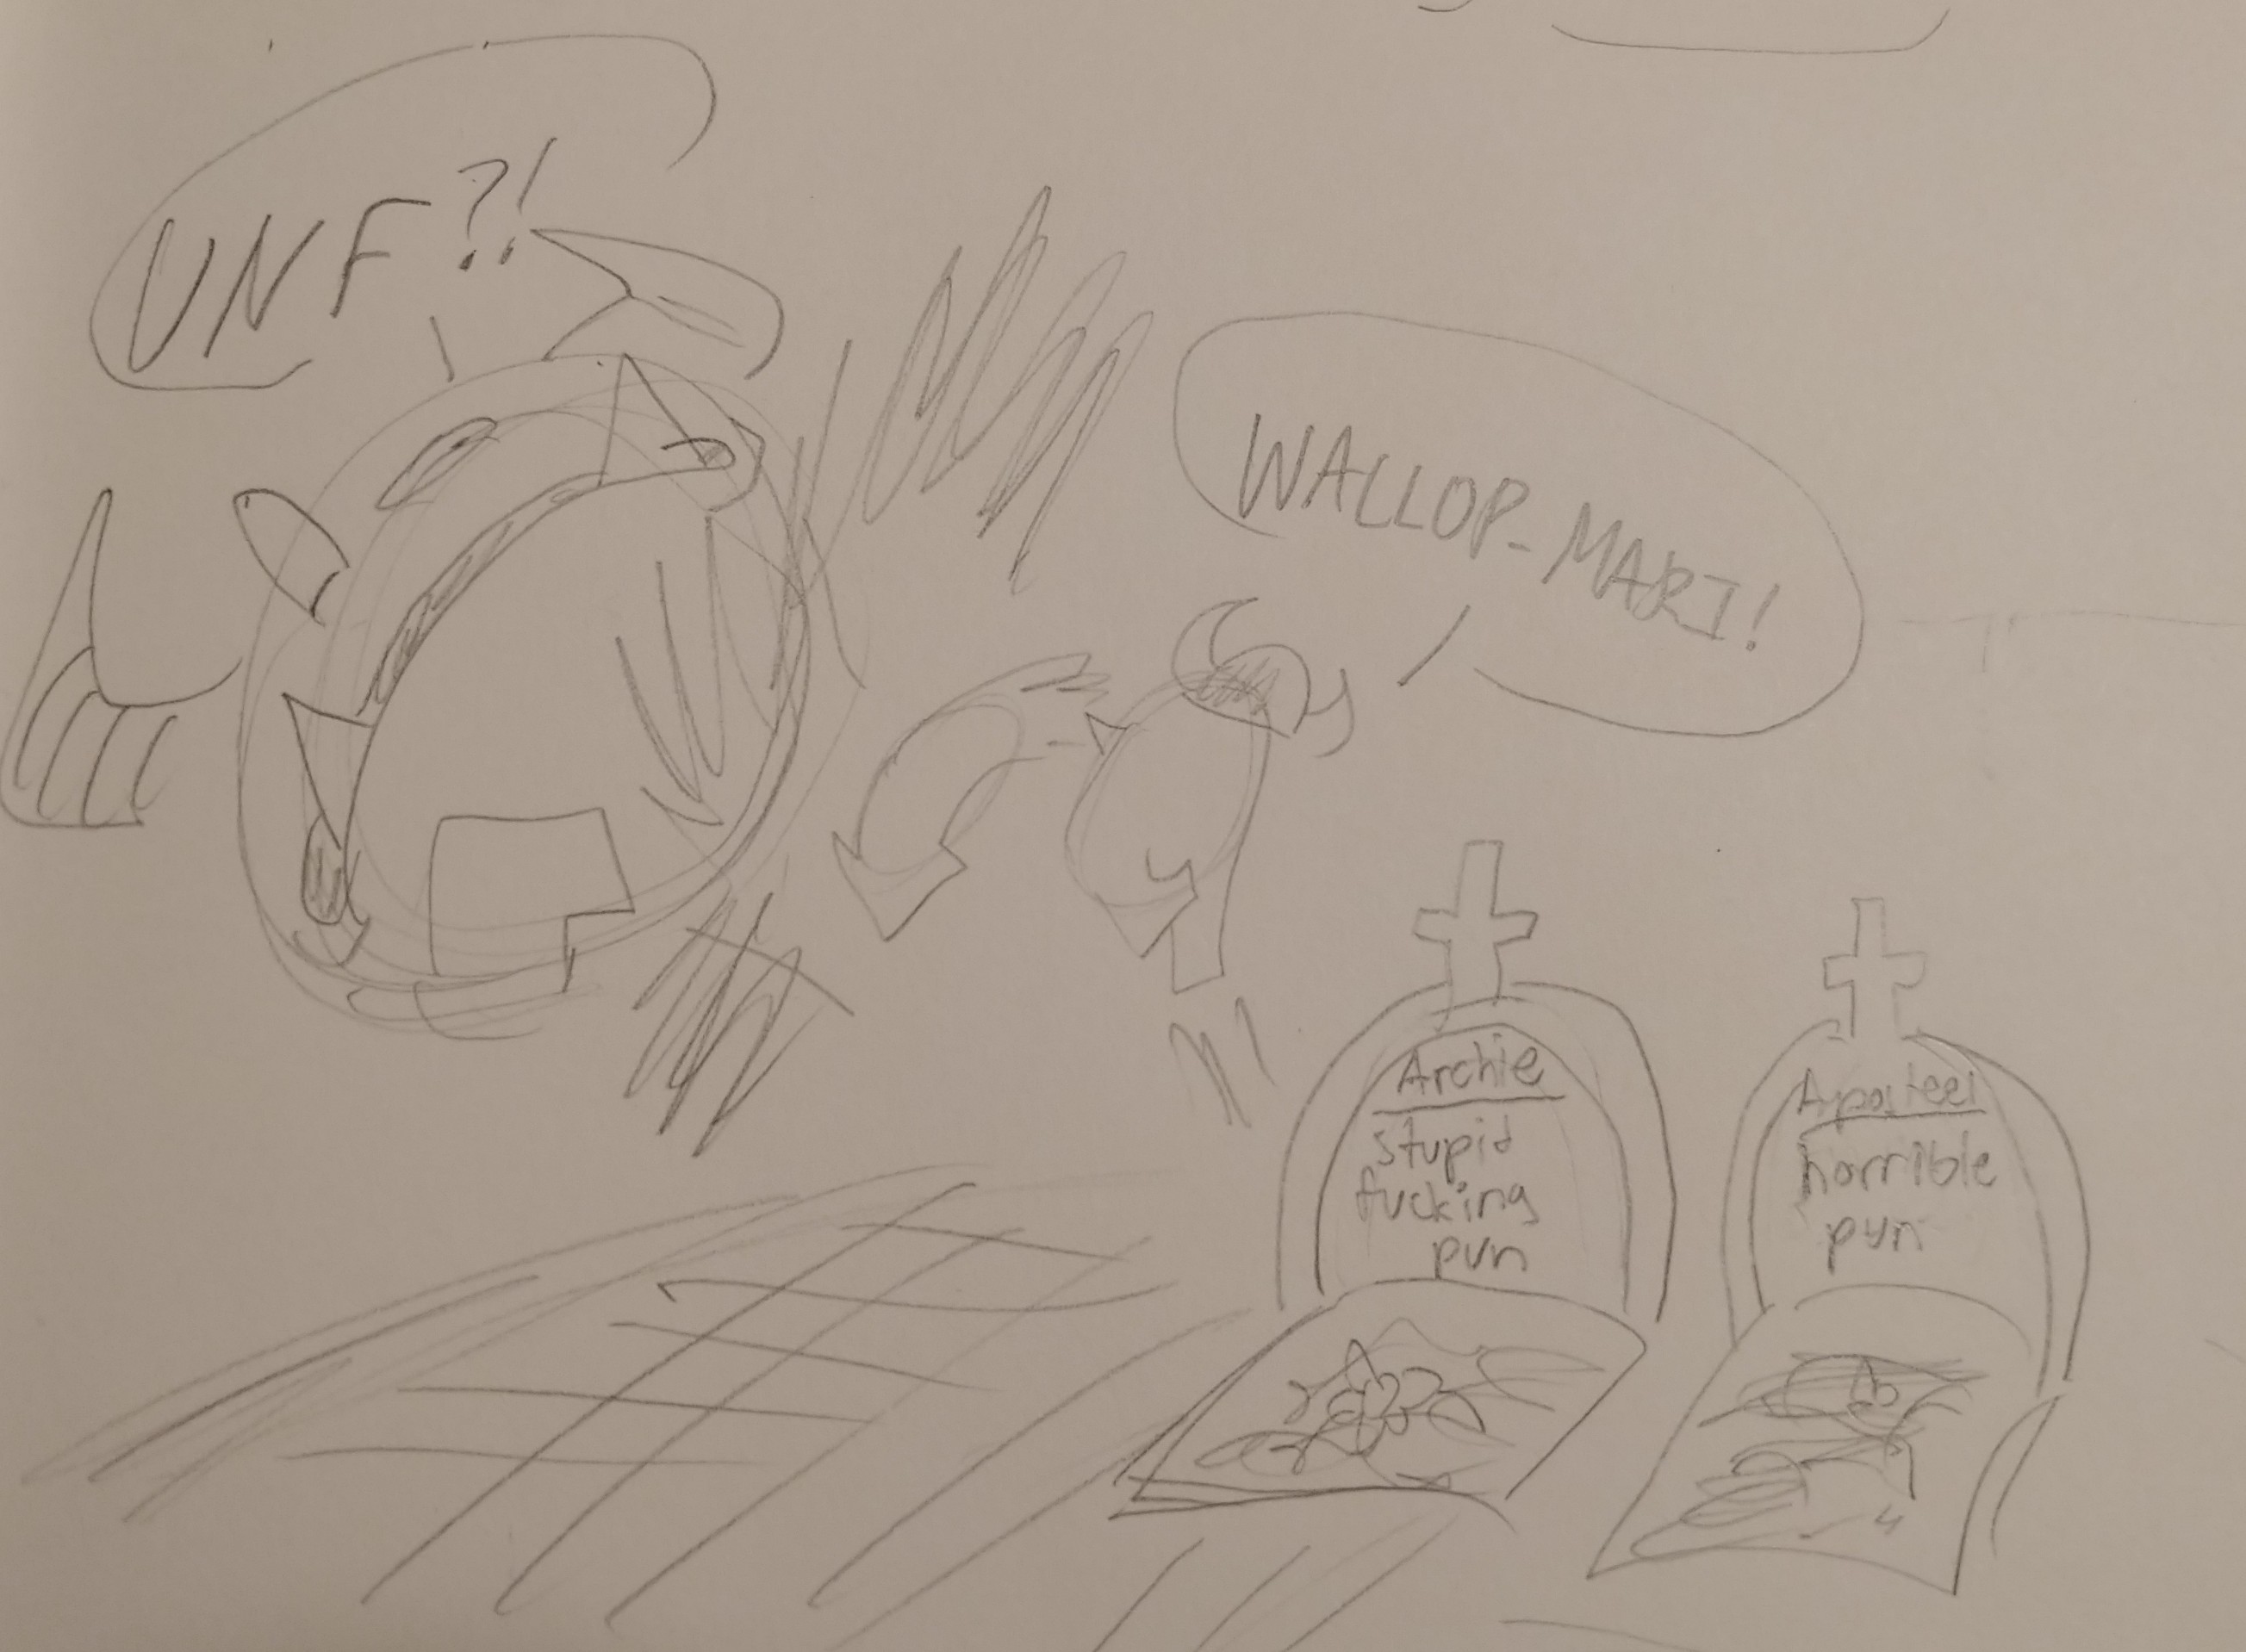 UNF?!
WALLOP-MART!
Archie
stupid
fucking
pun
horrible
pun